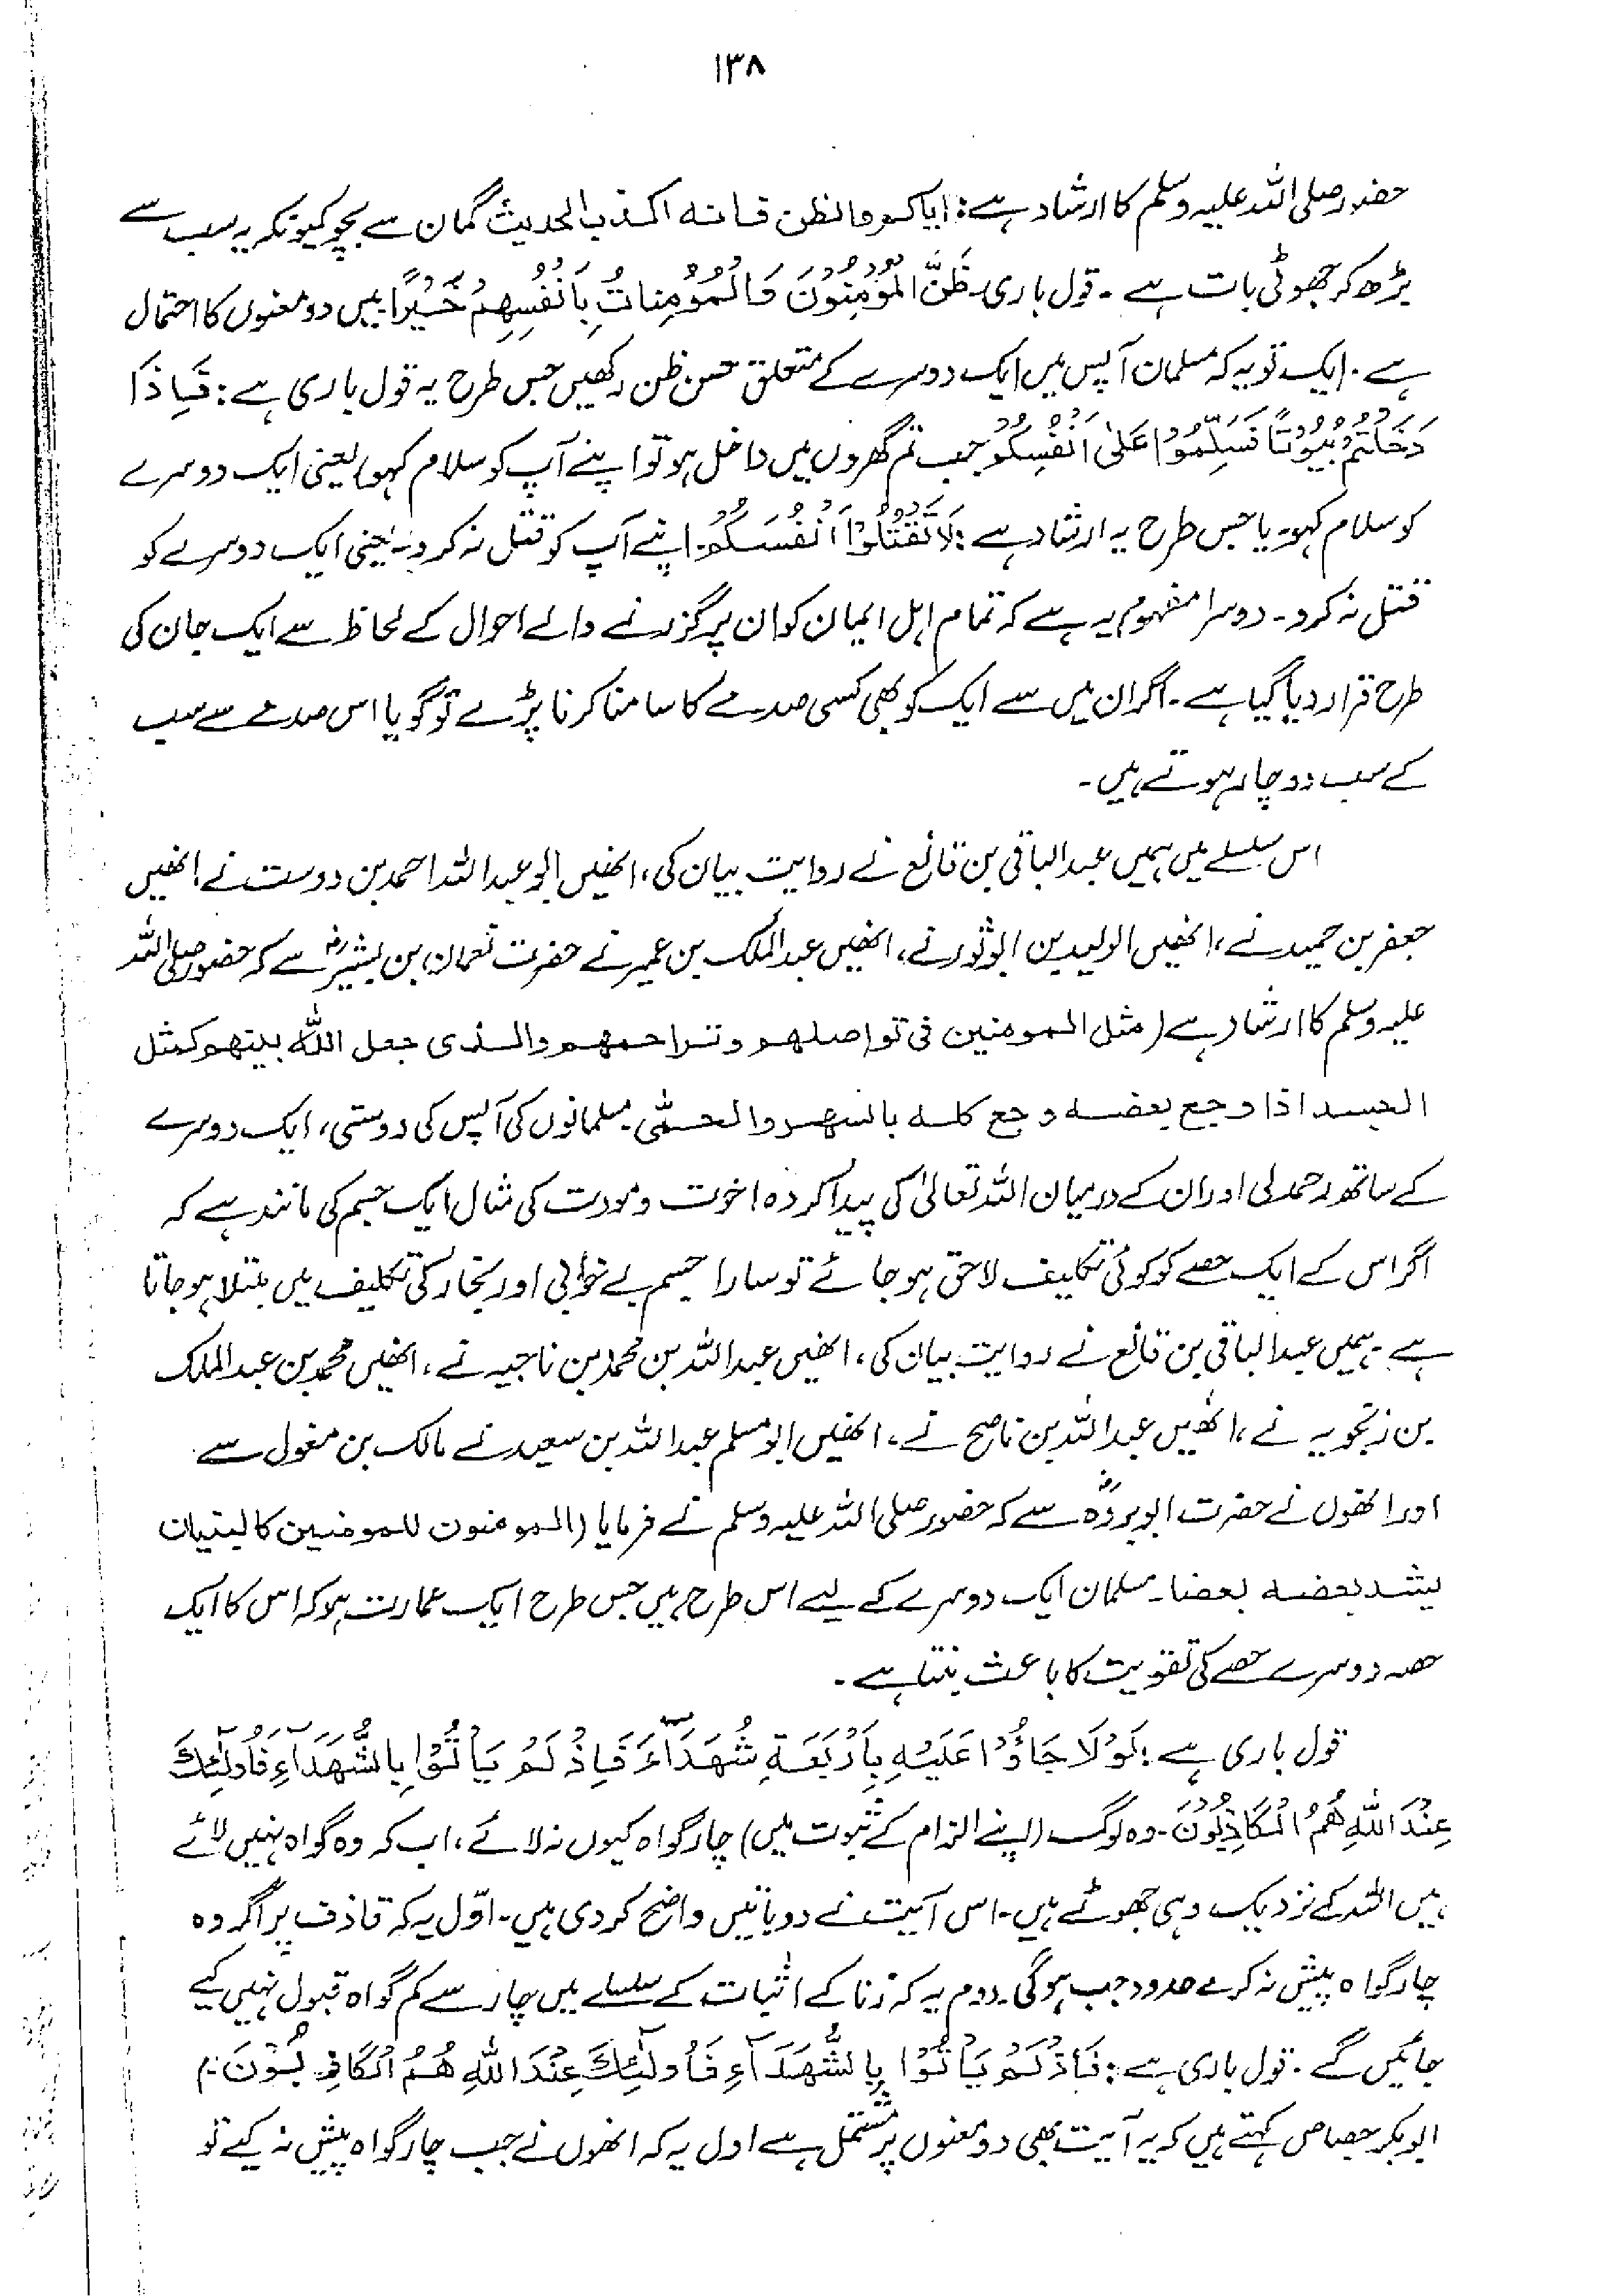 ۱۳۸
حضور صلی اللہ علیہ وسلم کا ارشاد ہے: ایاکم والظن فانه اکذب الحدیث گمان سے بچو کیونکہ یہ سب سے
بڑھ کر جھوٹی بات ہے۔ قول باری۔ ظَنَّ الْمُؤْمِنُوْنَ وَالْمُؤْمِنَاتُ بِاَنْفُسِهِمْ خَيْرًا۔ میں دو معنوں کا احتمال
ہے۔ ایک تو یہ کہ مسلمان آپس میں ایک دوسرے کے متعلق حسن ظن رکھیں جس طرح یہ قول باری ہے: فَاِذَا
دَخَلْتُمْ بُيُوْتًا فَسَلِّمُوْا عَلٰى اَنْفُسِكُمْ جب تم گھروں میں داخل ہو تو اپنے آپ کو سلام کہو یعنی ایک دوسرے
کو سلام کہو۔ یا جس طرح یہ ارشاد ہے: لَا تَقْتُلُوْا اَنْفُسَكُمْ۔ اپنے آپ کو قتل نہ کرو۔ یعنی ایک دوسرے کو
قتل نہ کرو۔ دوسرا مفہوم یہ ہے کہ تمام اہل ایمان کو ان پر گزرنے والے احوال کے لحاظ سے ایک جان کی
طرح قرار دیا گیا ہے۔ اگر ان میں سے ایک کو بھی کسی صدمے کا سامنا کرنا پڑے تو گویا اس صدمے سے سب
کے سب دوچار ہوتے ہیں۔
اس سلسلے میں ہمیں عبدالباقی بن قانع نے روایت بیان کی، انھیں ابو عبداللہ احمد بن دوست نے انھیں
جعفر بن حمید نے، انھیں الولید بن ابو ثور نے، انھیں عبدالملک بن عمیر نے حضرت نعمان بن بشیرؓ سے کہ حضور صلی اللہ
علیہ وسلم کا ارشاد ہے (مثل المومنین فی تواصلهم وتراحمهم والذی جعل الله بینهم کمثل
الجسد اذا وجع بعضه وجع کله بالسهر والحمّی۔ مسلمانوں کی آپس کی دوستی، ایک دوسرے
کے ساتھ رحمدلی اور ان کے درمیان اللہ تعالیٰ کی پیدا کردہ اخوت و مودت کی مثال ایک جسم کی مانند ہے کہ
اگر اس کے ایک حصے کو کوئی تکلیف لاحق ہو جائے تو سارا جسم بے خوابی اور بخار کی تکلیف میں مبتلا ہو جاتا
ہے۔ ہمیں عبدالباقی بن قانع نے روایت بیان کی، انھیں عبداللہ بن محمد بن ناجیہ نے، انھیں محمد بن عبدالملک
بن زنجویہ نے، انھیں عبداللہ بن ناصح نے، انھیں ابو مسلم عبداللہ بن سعید نے مالک بن مغول سے
اور انھوں نے حضرت ابوبردہؓ سے کہ حضور صلی اللہ علیہ وسلم نے فرمایا (المومنون للمومنین کالبنیان
یشد بعضه بعضا۔ مسلمان ایک دوسرے کے لیے اس طرح ہیں جس طرح ایک عمارت ہو کہ اس کا ایک
حصہ دوسرے حصے کی تقویت کا باعث بنتا ہے۔
قول باری ہے: لَوْلَا جَاؤُوْا عَلَيْهِ بِاَرْبَعَةِ شُهَدَآءَ فَاِذْ لَمْ يَاْتُوْا بِالشُّهَدَآءِ فَاُولٰٓئِكَ
عِنْدَ اللّٰهِ هُمُ الْكَاذِبُوْنَ۔ وہ لوگ (اپنے الزام کے ثبوت میں) چار گواہ کیوں نہ لائے، اب کہ وہ گواہ نہیں لائے
ہیں اللہ کے نزدیک وہی جھوٹے ہیں۔ اس آیت نے دو باتیں واضح کر دی ہیں۔ اوّل یہ کہ قاذف پر اگر وہ
چار گواہ پیش نہ کرے حد واجب ہوگی۔ دوم یہ کہ زنا کے اثبات کے سلسلے میں چار سے کم گواہ قبول نہیں کیے
جائیں گے۔ قول باری ہے: فَاِذْ لَمْ يَاْتُوْا بِالشُّهَدَآءِ فَاُولٰٓئِكَ عِنْدَ اللّٰهِ هُمُ الْكَاذِبُوْنَ۔
ابوبکر جصاص کہتے ہیں کہ یہ آیت بھی دو معنوں پر مشتمل ہے اول یہ کہ انھوں نے جب چار گواہ پیش نہ کیے تو